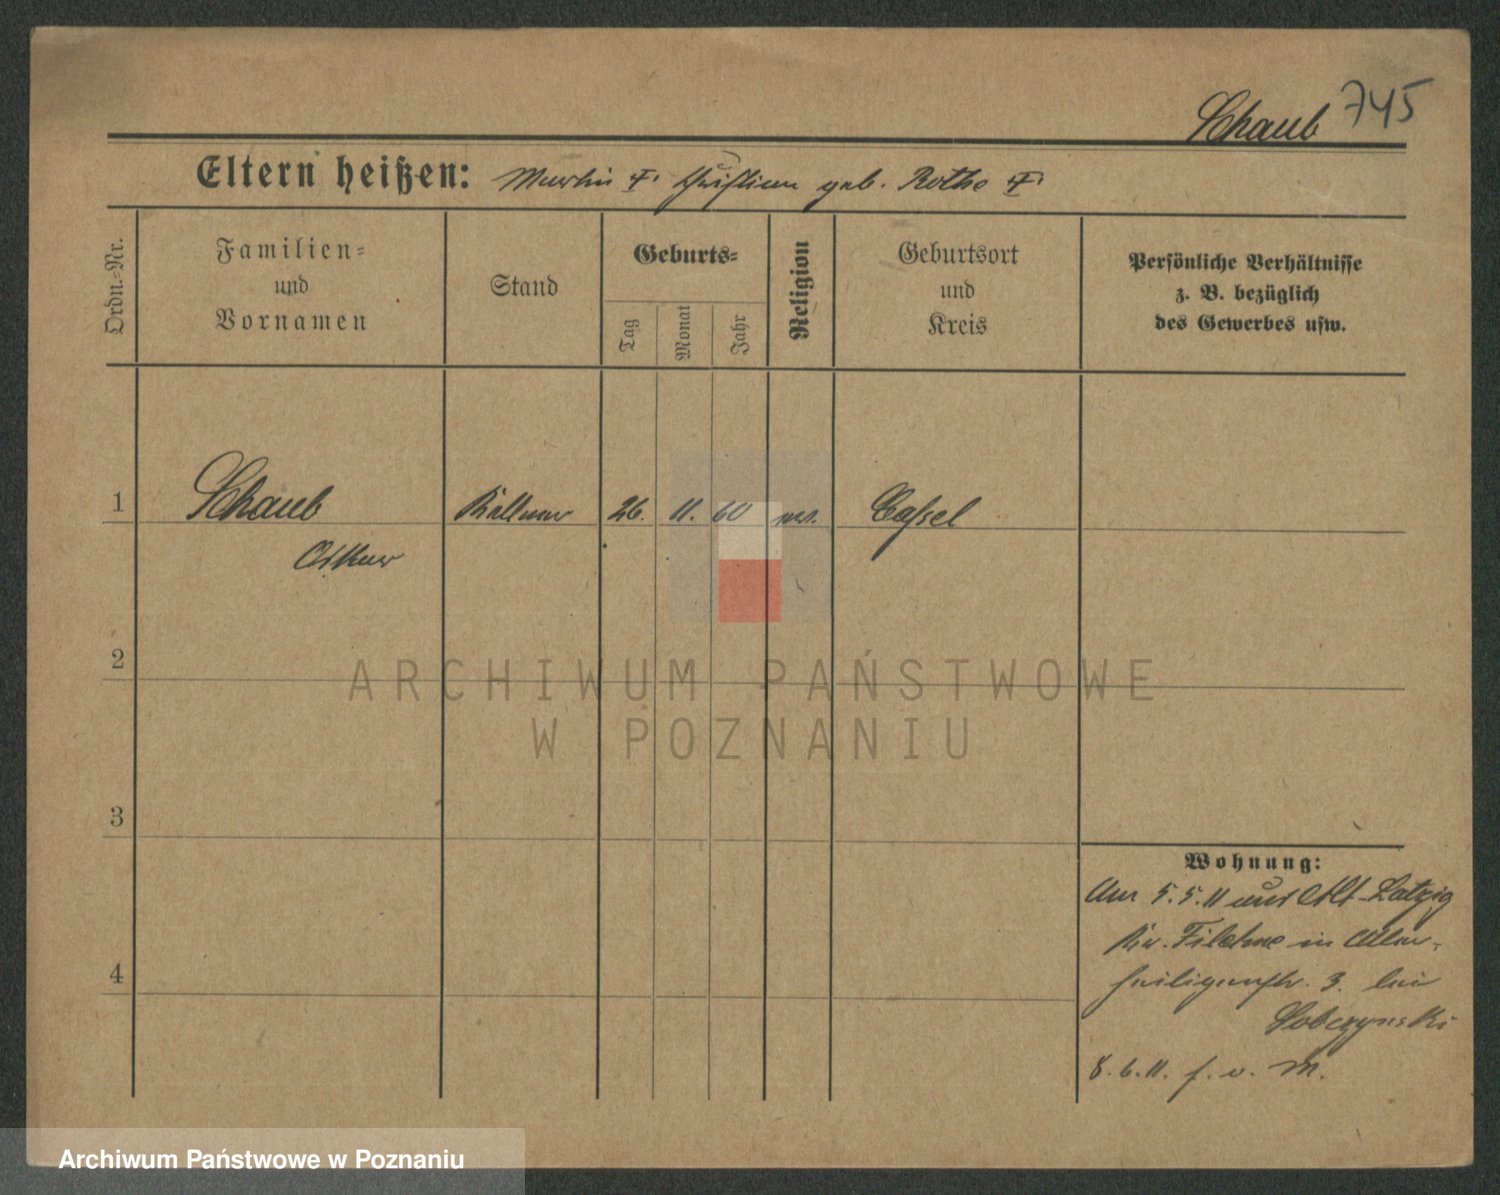 745
Schaub
Eltern heißen: Martin † Christian geb. Rothe †
Ordn.-Nr.
Familien-
und
Vornamen
Stand
Geburts-
Tag
Monat
Jahr
Religion
Geburtsort
und
Kreis
Persönliche Verhältnisse
z. B. bezüglich
des Gewerbes usw.
1 Schaub Kellner 26. 11. 60 Cassel
Oskar
2
3
4
Wohnung:
Am 5.5.11 aus Alt-Latzig
Kr. Filehne in Aller-
heiligenstr. 3. bei
Sobczynski
8.6.11. f. v. M.
ARCHIWUM PAŃSTWOWE
W POZNANIU
Archiwum Państwowe w Poznaniu